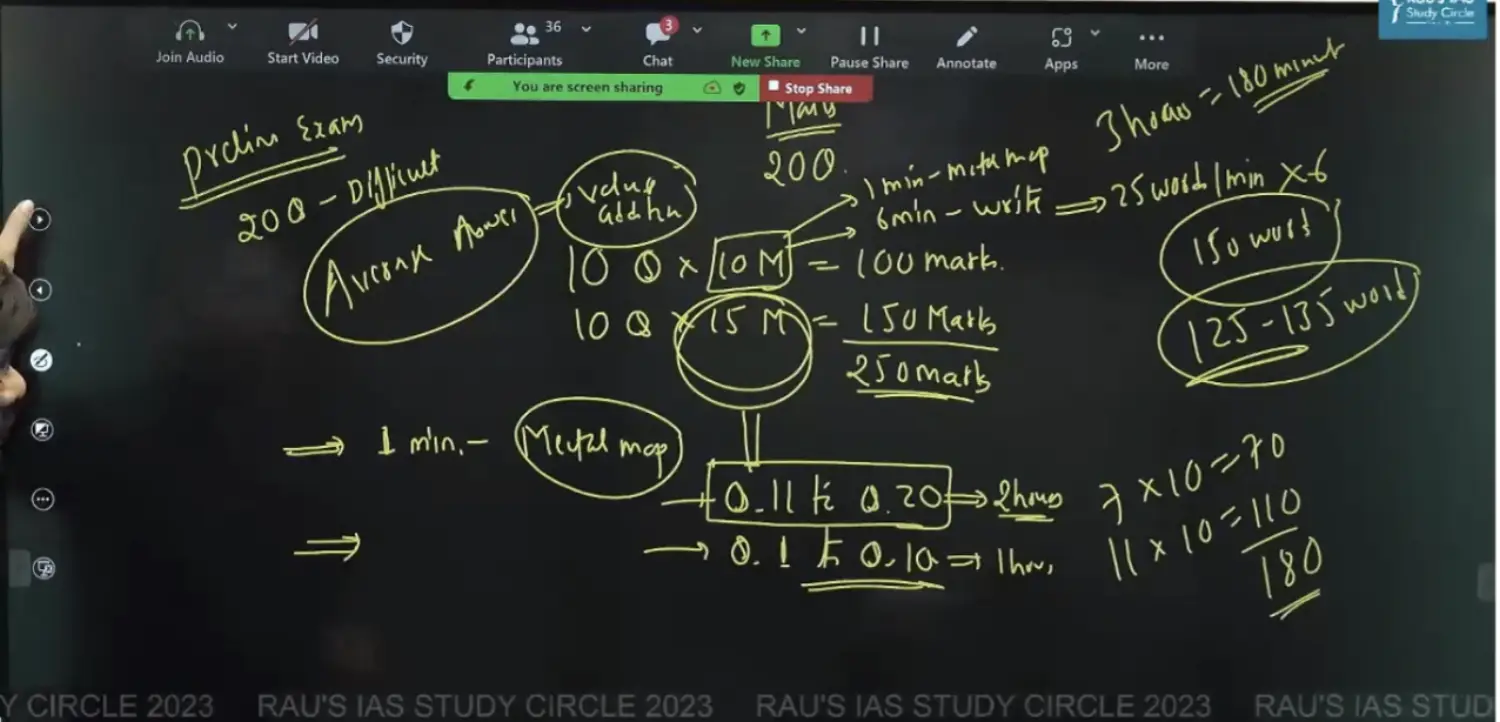 RAU'S IAS
Study Circle
36
3
Join Audio
Start Video
Security
Participants
Chat
New Share
Pause Share
Annotate
Apps
More
You are screen sharing
Stop Share
3 hours = 180 minut
Prelim Exam
20Q - Difficult
Average Answer
value
addition
20Q.
1 min - mental map
6 min - write ⇒ 25 word / min × 6
150 word
125 - 135 word
10 Q × 10 M = 100 mark.
10 Q × 15 M = 150 Marks
250 mark
⇒ 1 min. - Mental map
→ Q.11 to Q.20 ⇒ 2 hours
⇒ → Q.1 to Q.10 ⇒ 1 hour
7 × 10 = 70
11 × 10 = 110
180
Y CIRCLE 2023 RAU'S IAS STUDY CIRCLE 2023 RAU'S IAS STUDY CIRCLE 2023 RAU'S IAS STUD